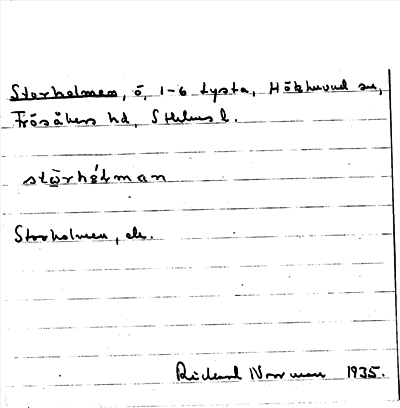 Storholmen, ö, 1-6 Lysta, Hökhuvud sn,
Frösåkers hd, Sthlms l.
stɷ̄rhɷ́lman
Storholmen, ek.
Rickard Norrman 1935.